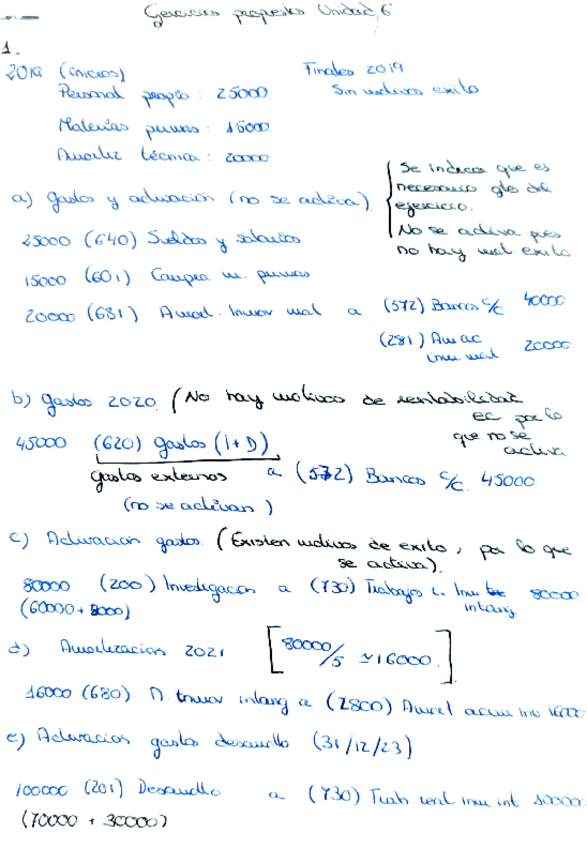 Ejercicios propuestos Unidad 6
1.
2019 (inicios)
Personal propio : 25000
Materias primas : 15000
Amortiz técnica : 20000
Finales 2019
Sin motivos exito
a) gastos y activación (no se activa)
Se indica que es
necesario gto del
ejercicio.
No se activa pues
no hay mot exito
25000 (640) Sueldos y salarios
15000 (601) Compra m. primas
20000 (681) Amort. Inmov mat a (572) Bancos c/c 40000
(281) Am ac
inm. mat 20000
b) gastos 2020 (No hay motivos de rentabilidad
ec por lo
que no se
activa
45000 (620) gastos (I+D)
gastos externos a (572) Bancos c/c 45000
(no se activan)
c) Activación gastos (Existen motivos de exito, por lo que
se activa).
80000 (200) Investigación a (730) Trabajos r. Inm
intang 80000
(60000 +
d) Amortización 2021 [80000/5 ≃ 16000]
16000 (680) A. Inmov intang a (2800) Amort acum inv 16000
e) Activación gastos desarrollo (31/12/23)
100000 (201) Desarrollo a (730) Trab real inm int 100000
(70000 + 30000)